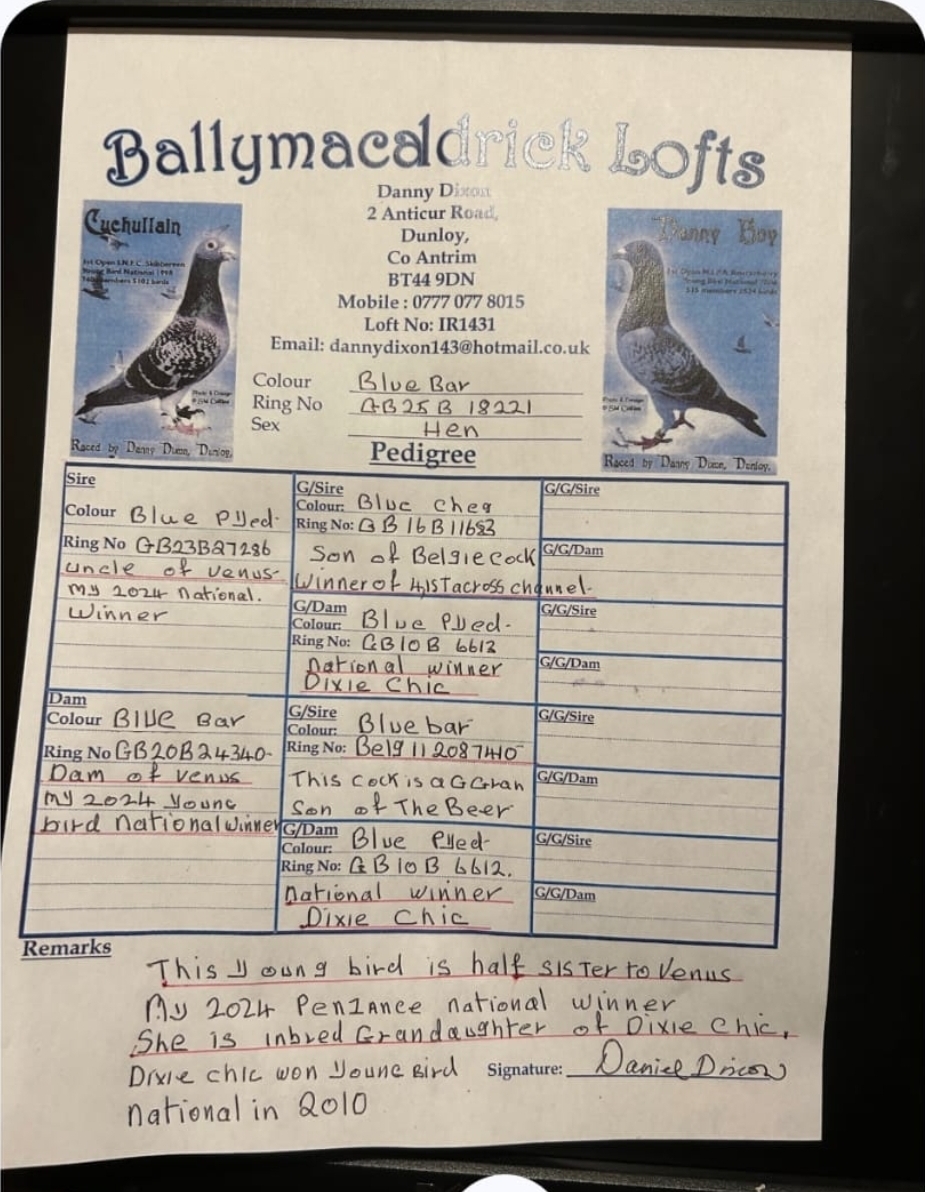 Ballymacaldrick Lofts
Danny Dixon
2 Anticur Road,
Dunloy,
Co Antrim
BT44 9DN
Mobile : 0777 077 8015
Loft No: IR1431
Email: dannydixon143@hotmail.co.uk
Cuchullain
1st Open I.N.F.C. Skibbereen
Young Bird National
Raced by Danny Dixon, Dunloy.
Danny Boy
Young Bird National
Raced by Danny Dixon, Dunloy.
Colour Blue Bar
Ring No GB25B 18221
Sex Hen
Pedigree
Sire
Colour Blue Pied
Ring No GB23B27286
uncle of Venus
my 2024 national.
Winner
G/Sire
Colour: Blue Cheq
Ring No: GB16B11683
Son of Belgie cock
Winner of 4,1ST across channel.
G/Dam
Colour: Blue Pied
Ring No: GB10B 6612
national winner
Dixie Chic
Dam
Colour Blue Bar
Ring No GB20B24340
Dam of Venus
my 2024 young
bird national winner
G/Sire
Colour: Blue bar
Ring No: Belg 11 2087440
This cock is a G Gran
Son of The Beer
G/Dam
Colour: Blue Pied
Ring No: GB10B 6612.
national winner
Dixie Chic
G/G/Sire
G/G/Dam
G/G/Sire
G/G/Dam
G/G/Sire
G/G/Dam
G/G/Sire
G/G/Dam
Remarks
This young bird is half sister to Venus
My 2024 Penzance national winner
She is inbred Grandaughter of Dixie Chic.
Dixie chic won young Bird
national in 2010
Signature: Daniel Dixon